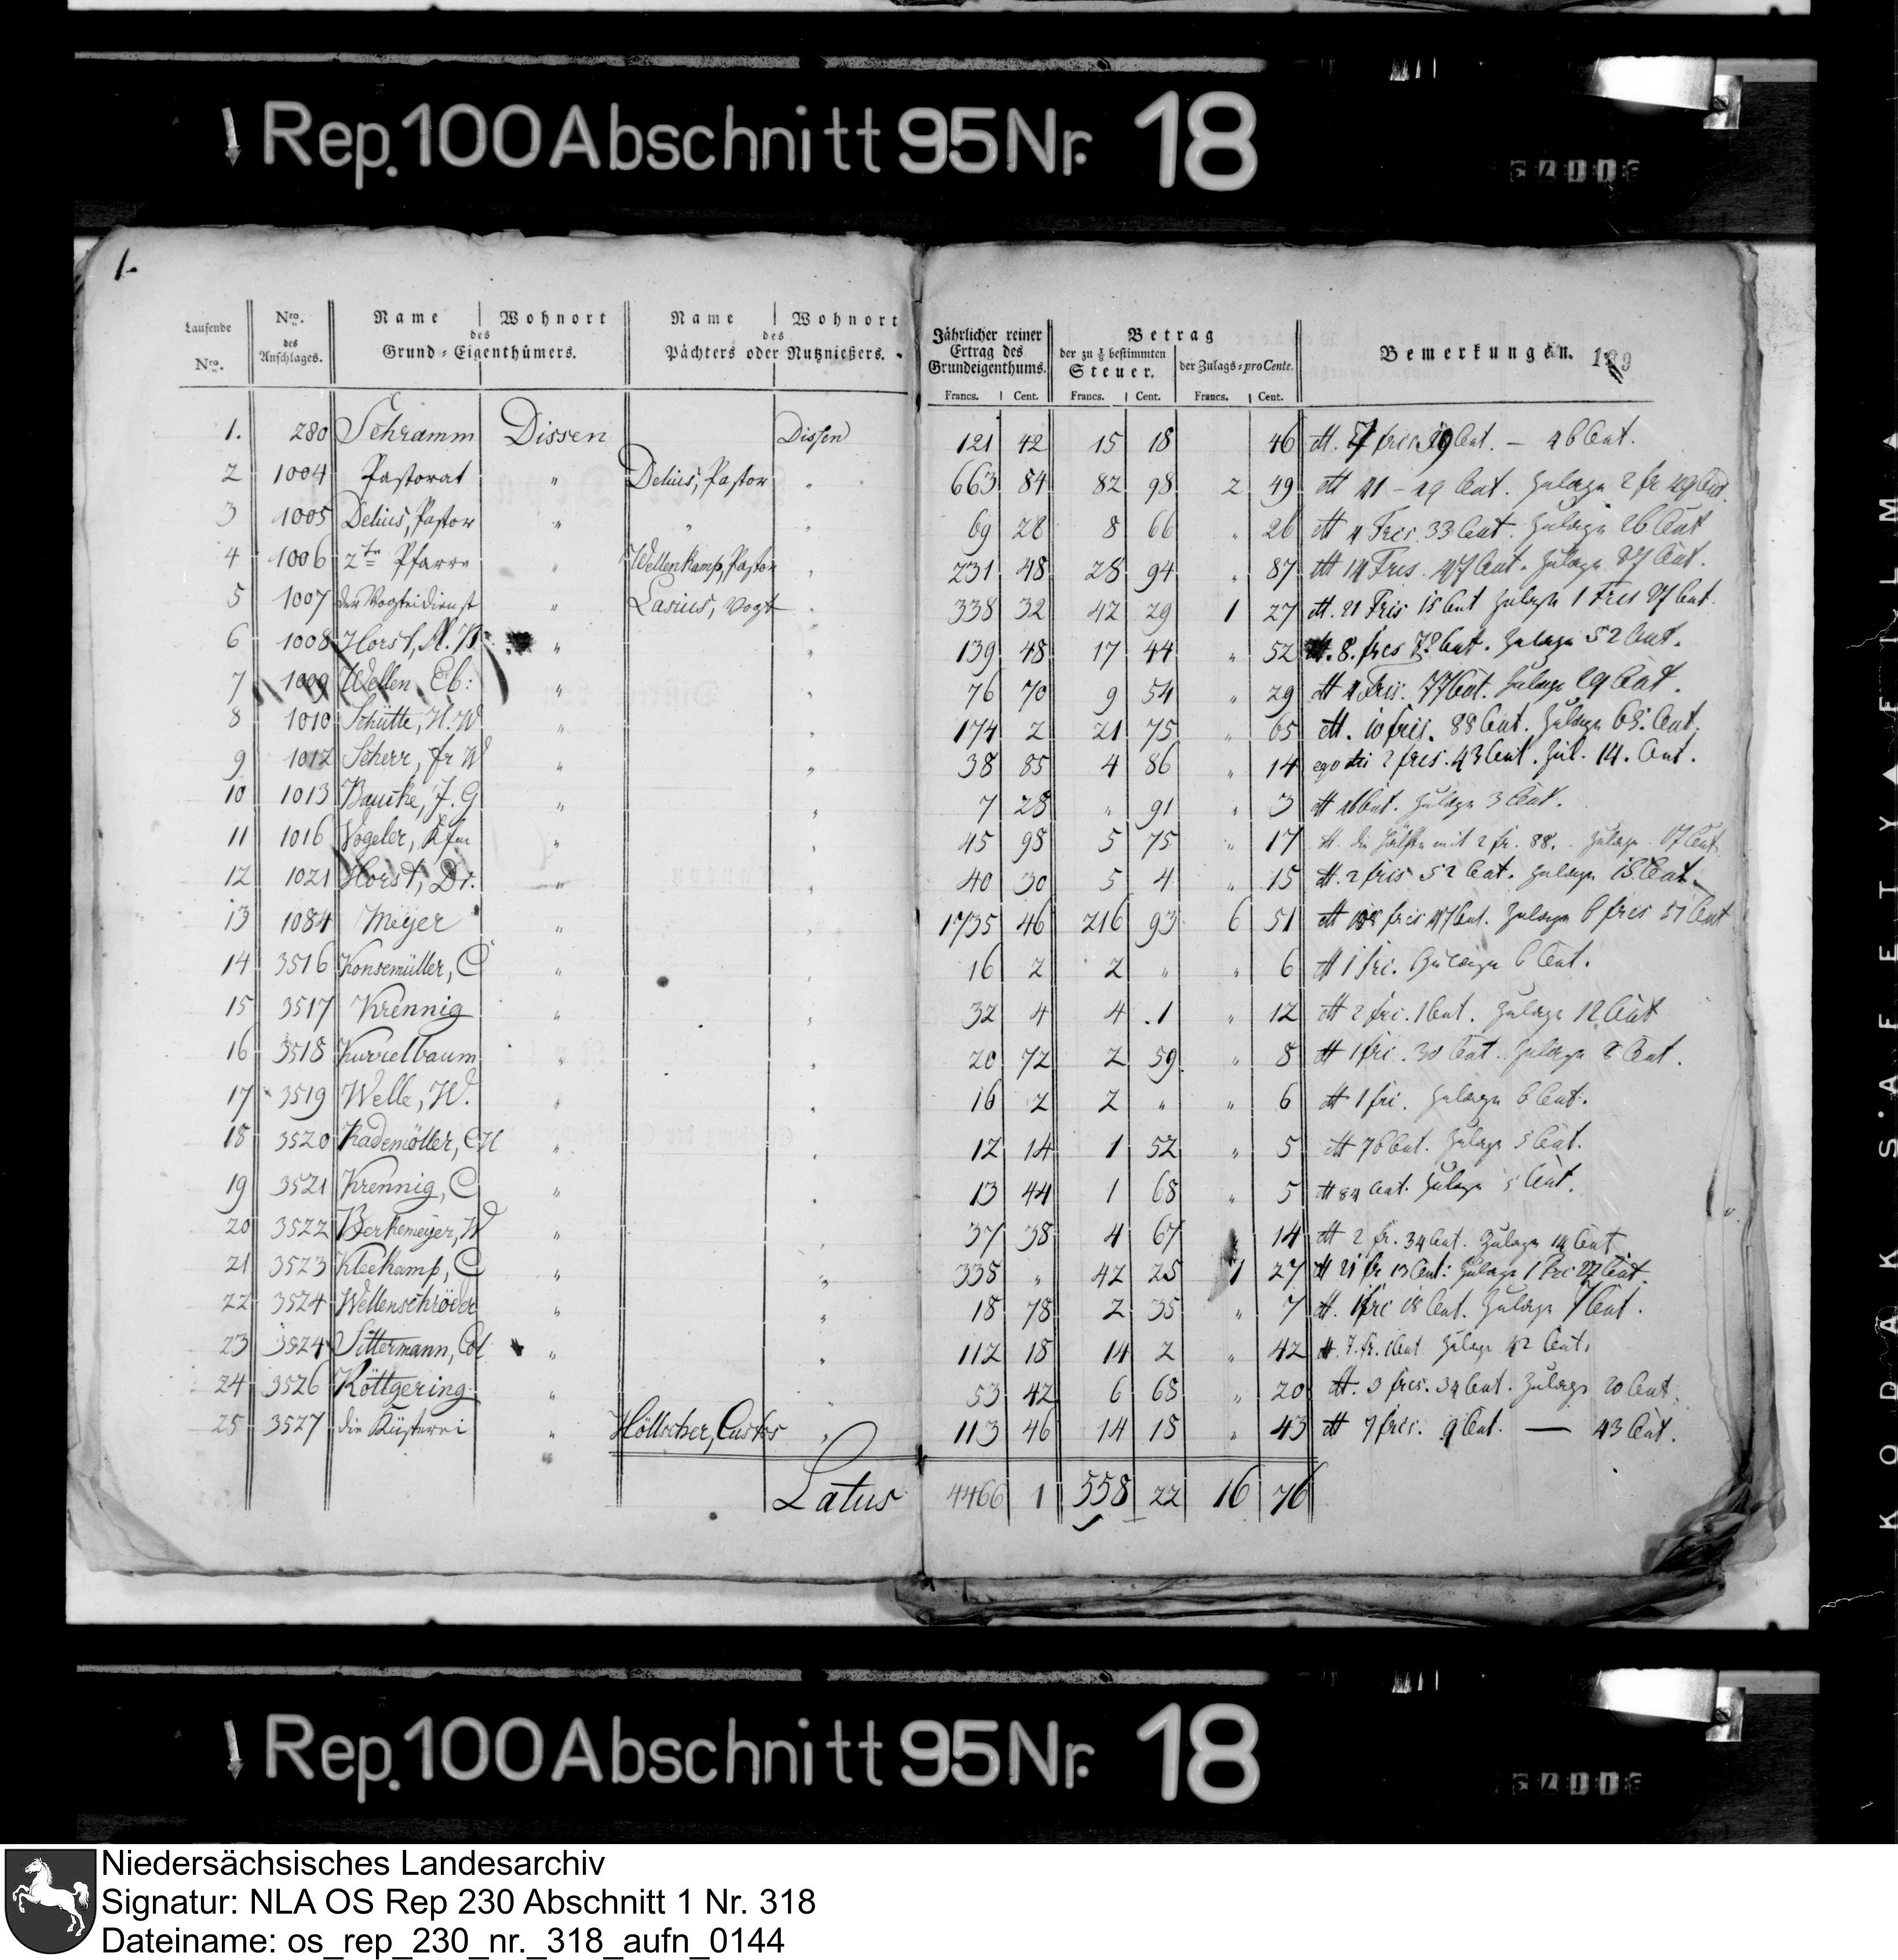 Rep. 100 Abschnitt 95 Nr. 18
1.
Laufende Nro. | Nro. des Anschlages. | Name des Grund-Eigenthümers. | Wohnort | Name des Pächters oder Nutznießers. | Wohnort | Jährlicher reiner Ertrag des Grundeigenthums. Francs. Cent. | Betrag der zu ⅛ bestimmten Steuer. Francs. Cent. | der Zulags-pro Cente. Francs. Cent. | Bemerkungen.
1. 280 Schramm Dissen Dissen 121 42 15 18 46 46 Cent.
2 1004 Pastorat " Delius, Pastor " 663 84 82 98 2 49 Zulage 2 fr 49 Cent.
3 1005 Delius, Pastor " " " 69 28 8 66 " 26 4 Frcs. 33 Cent. Zulage 26 Cent
4 1006 2te Pfarre " Wellenkamp, Pastor " 231 48 28 94 " 87 14 Frcs. 47 Cent. Zulage 87 Cent.
5 1007 der Vogteidienst " Lasius, Vogt " 338 32 42 29 1 27 21 Frcs 15 Cent Zulage 1 Frcs 27 Cent.
6 1008 Horst, " " 139 48 17 44 " 52 8. frcs 72 Cent. Zulage 52 Cent.
7 1009 Wellen, Eb: " " 76 70 9 54 " 29 4 Frcs. 77 Cent. Zulage 29 Cent.
8 1010 Schütte, H. W " " 174 2 21 75 " 65 10 frcs. 88 Cent. Zulage 65. Cent.
9 1012 Scherr, fr W " " 38 85 4 86 " 14 2 frcs. 43 Cent. Zul. 14. Cent.
10 1013 Baucke, J. G " " 7 28 " 91 " 3 46 Cent. Zulage 3 Cent.
11 1016 Vogeler, Kfm " " 45 98 5 75 " 17 die Hälfte mit 2 fr. 88. Zulage 17 Cent.
12 1021 Horst, Dr. " " 40 30 5 4 " 15 2 frcs 52 Cent. Zulage 15 Cent.
13 1084 Meyer " " 1735 46 216 93 6 51 108 frcs 47 Cent. Zulage 6 frcs 51 Cent
14 3516 Konsemüller, C " " 16 2 2 " " 6 1 frc. Zulage 6 Cent.
15 3517 Krennig " " 32 4 4 1 " 12 2 frc. 1 Cent. Zulage 12 Cent
16 3518 Kurrelbaum " " 20 72 2 59 " 8 1 frc. 30 Cent. Zulage 8 Cent.
17 3519 Welle, W. " " 16 2 2 " " 6 1 frc. Zulage 6 Cent.
18 3520 Rademöller, CH " " 12 14 1 52 " 5 76 Cent. Zulage 5 Cent.
19 3521 Krennig, C " " 13 44 1 68 " 5 84 Cent. Zulage 5 Cent.
20 3522 Berkemeyer, W " " 37 38 4 67 " 14 2 fr. 34 Cent. Zulage 14 Cent
21 3523 Kleekamp, C " " 338 " 42 25 1 27 21 fr 13 Cent: Zulage 1 frc 27 Cent.
22 3524 Wellenschröder " " 18 78 2 35 " 7 1 frc 18 Cent. Zulage 7 Cent.
23 3524 Sittermann, Col " " 112 18 14 2 " 42 7. fr. 1 Cent Zulage 42 Cent.
24 3526 Köttgering " " 53 42 6 68 " 20 3 frcs. 34 Cent. Zulage 20 Cent.
25 3527 die Küsterei " Höllscher, Custos " 113 46 14 18 " 43 7 frcs. 9 Cent. — 43 Cent.
Latus 4466 1 558 22 16 76
KODAK SAFETY FILM
Rep. 100 Abschnitt 95 Nr. 18
Niedersächsisches Landesarchiv
Signatur: NLA OS Rep 230 Abschnitt 1 Nr. 318
Dateiname: os_rep_230_nr._318_aufn_0144